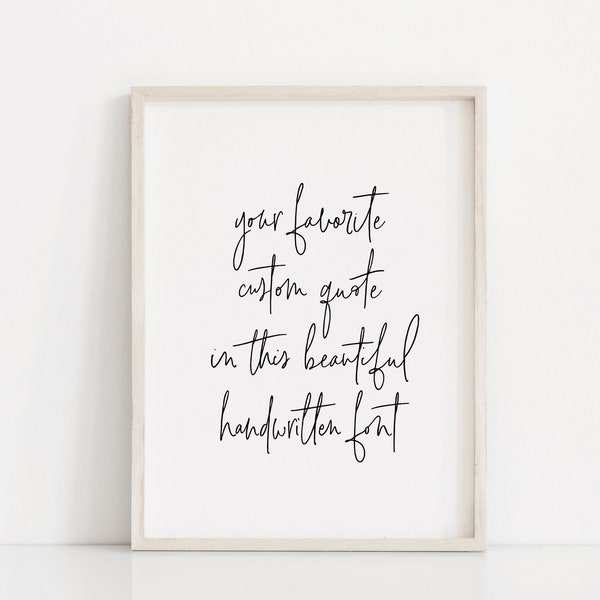 your favorite
custom quote
in this beautiful
handwritten font